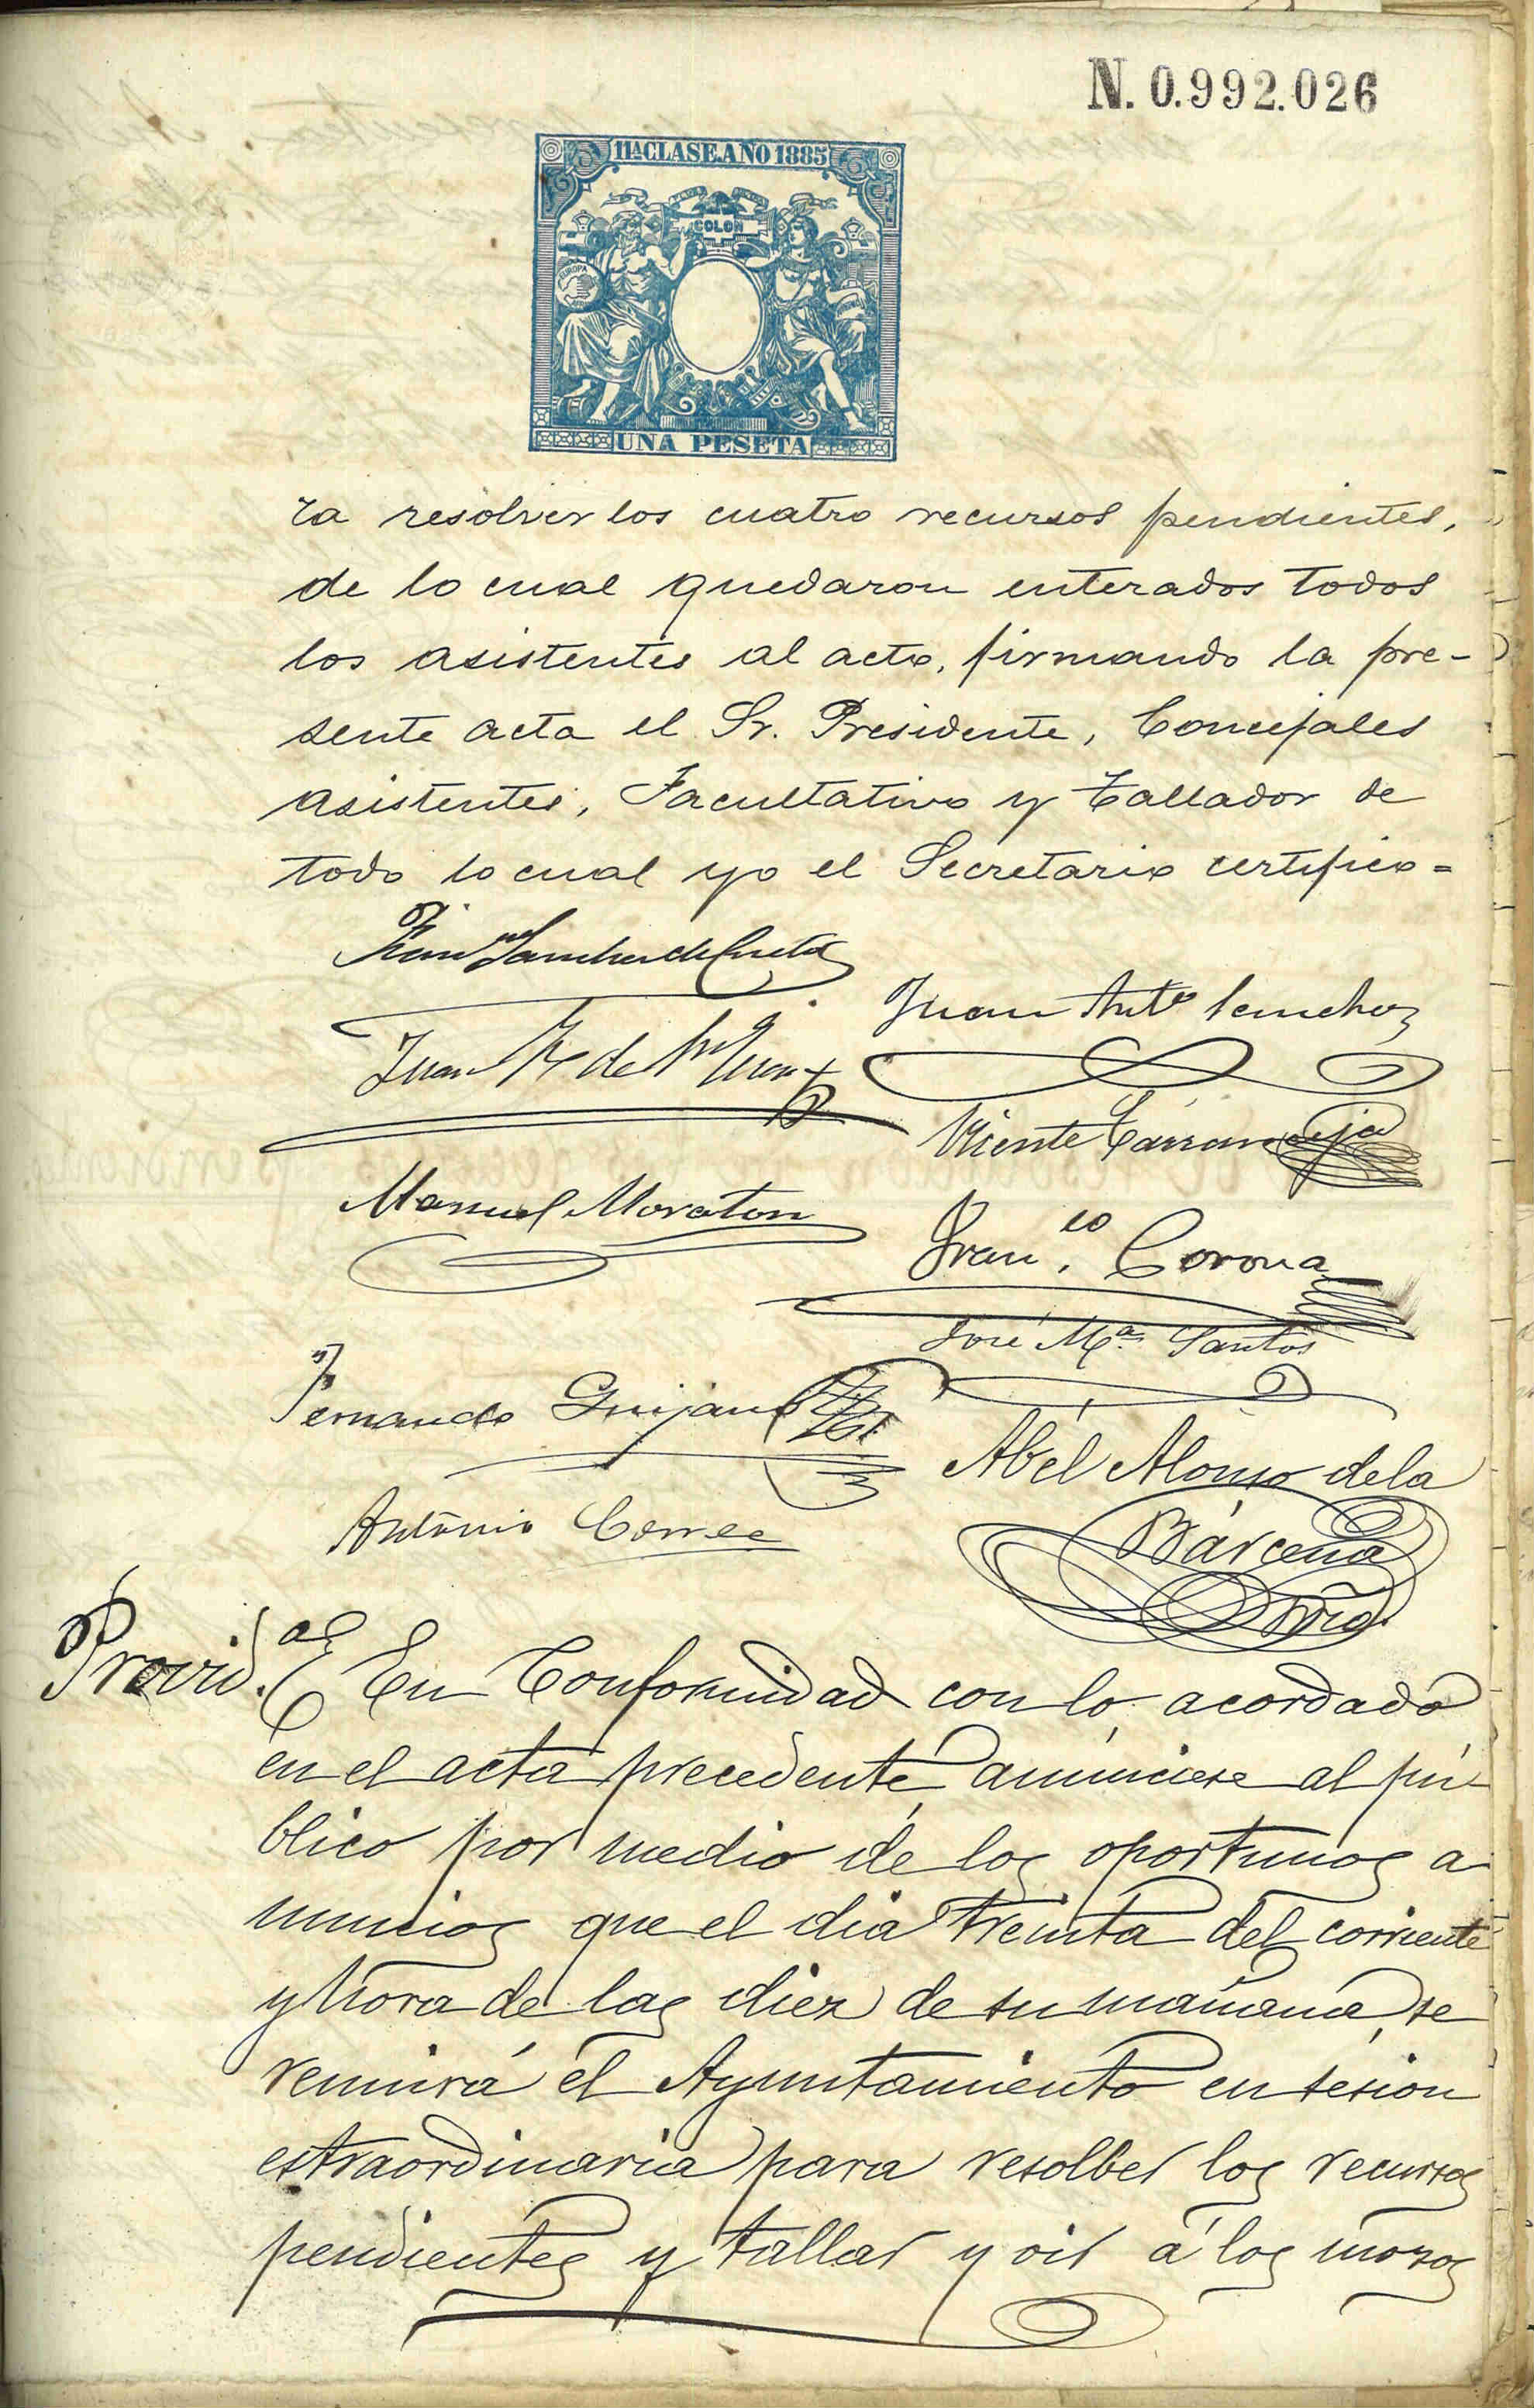 N. 0.992.026
11ª CLASE. AÑO 1885
COLON
EUROPA
UNA PESETA
ra resolver los cuatro recursos pendientes,
de lo cual quedaron enterados todos
los asistentes al acto, firmando la pre-
sente acta el Sr. Presidente, Concejales
asistentes, Facultativo y Tallador de
todo lo cual yo el Secretario certifico=
Juan
Juan Antº Sanchez
Vicente
Manuel Moraton
Franco. Corona
José Mª Santos
Fernando Guijarro
Abel Alonso de la
Bárcena
Antonio Correa
Srio.
Provid.ª En Conformidad con lo acordado
en el acta precedente, anúnciese al pú-
blico por medio de los oportunos a-
nuncios que el dia treinta del corriente
y hora de las diez de su mañana, se
reunirá el Ayuntamiento en sesion
estraordinaria para resolber los recursos
pendientes y tallar y oir á los mozos